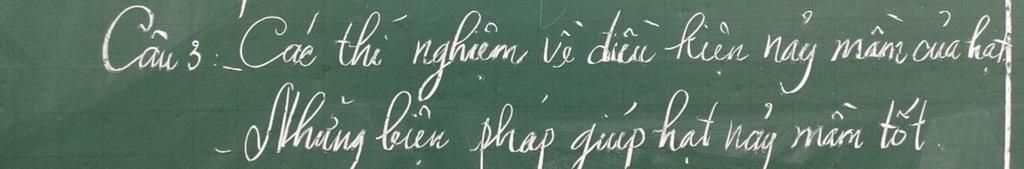 Câu 3: - Các thí nghiệm về điều kiện nảy mầm của hạt
- Những biện pháp giúp hạt nảy mầm tốt